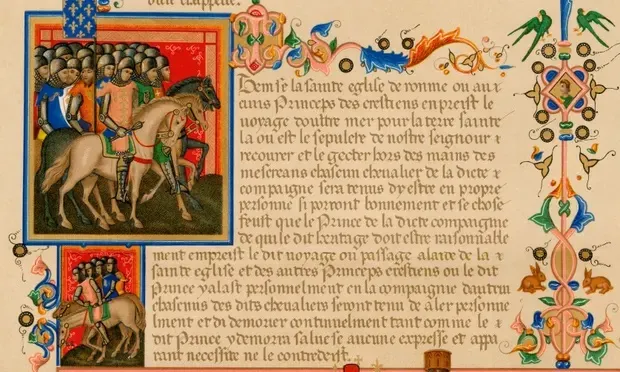 Item se la sainte eglise de romme ou aux
Princeps des crestiens en preist le
voyage doultre mer pour la terre sainte
la ou est le sepulcre de nostre seignour
recourer et le gecter hors des mains des
mescreans chascun chevalier de la dicte
compaignie sera tenus dy estre en propre
personne si porront bonnement et se chose
feust que le Prince de la dicte compaignie
de qui le dit heritage doit estre raisonnable
ment empreist le dit voyage ou passage alaide de la
sainte eglise et des autres Princeps crestiens ou le dit
Prince yalast personnelment en la compaignie dautrui
chascuns des dits chevaliers seront tenu de aler personne
lment et di demorer continuelment tant comme le
dit Prince y demorra salve se aucune expresse et appa
rant necessite ne le contredeist.